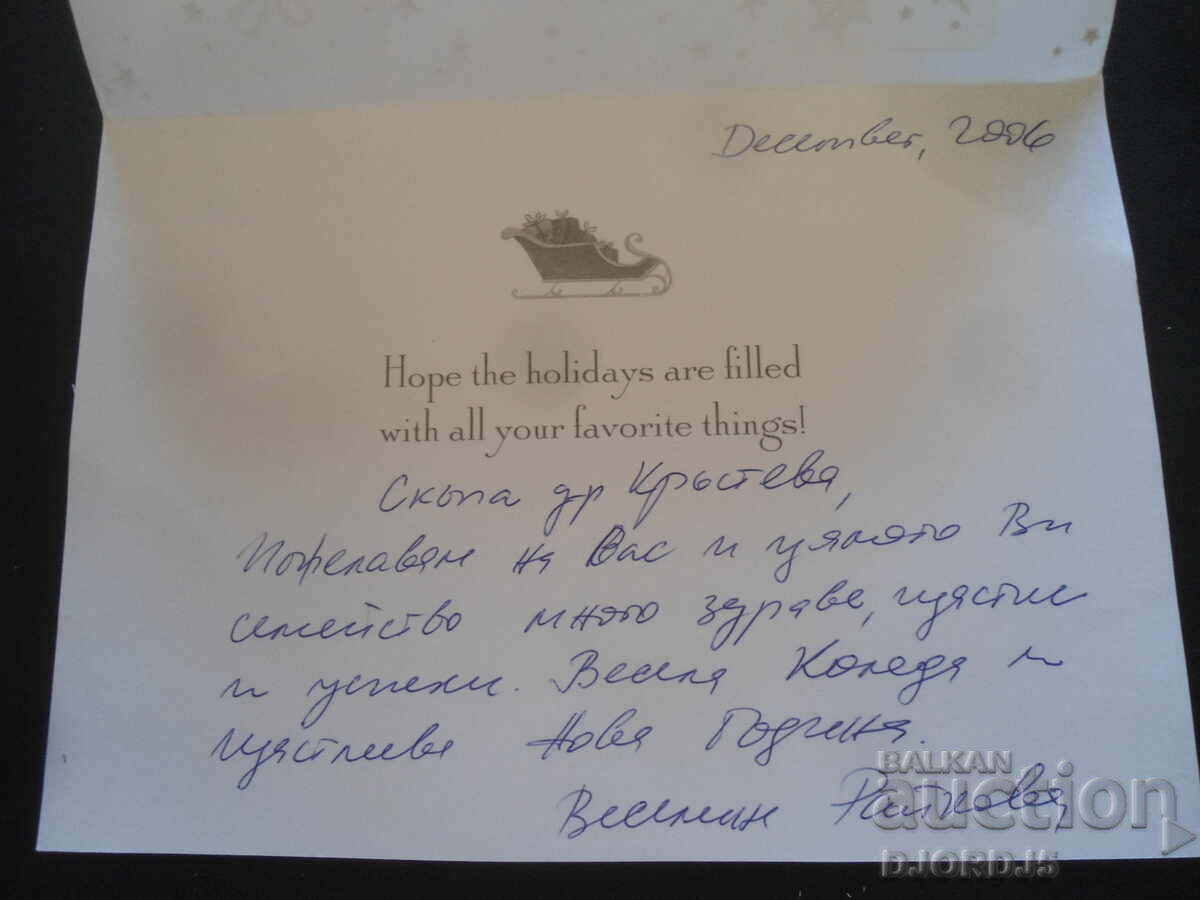 December, 2006
Hope the holidays are filled
with all your favorite things!
Скъпа др Кръстева,
Пожелавам на Вас и цялото Ви
семейство много здраве, щастие
и успехи. Весела Коледа и
щастлива Нова Година.
BALKAN
auction
DJORDJ5